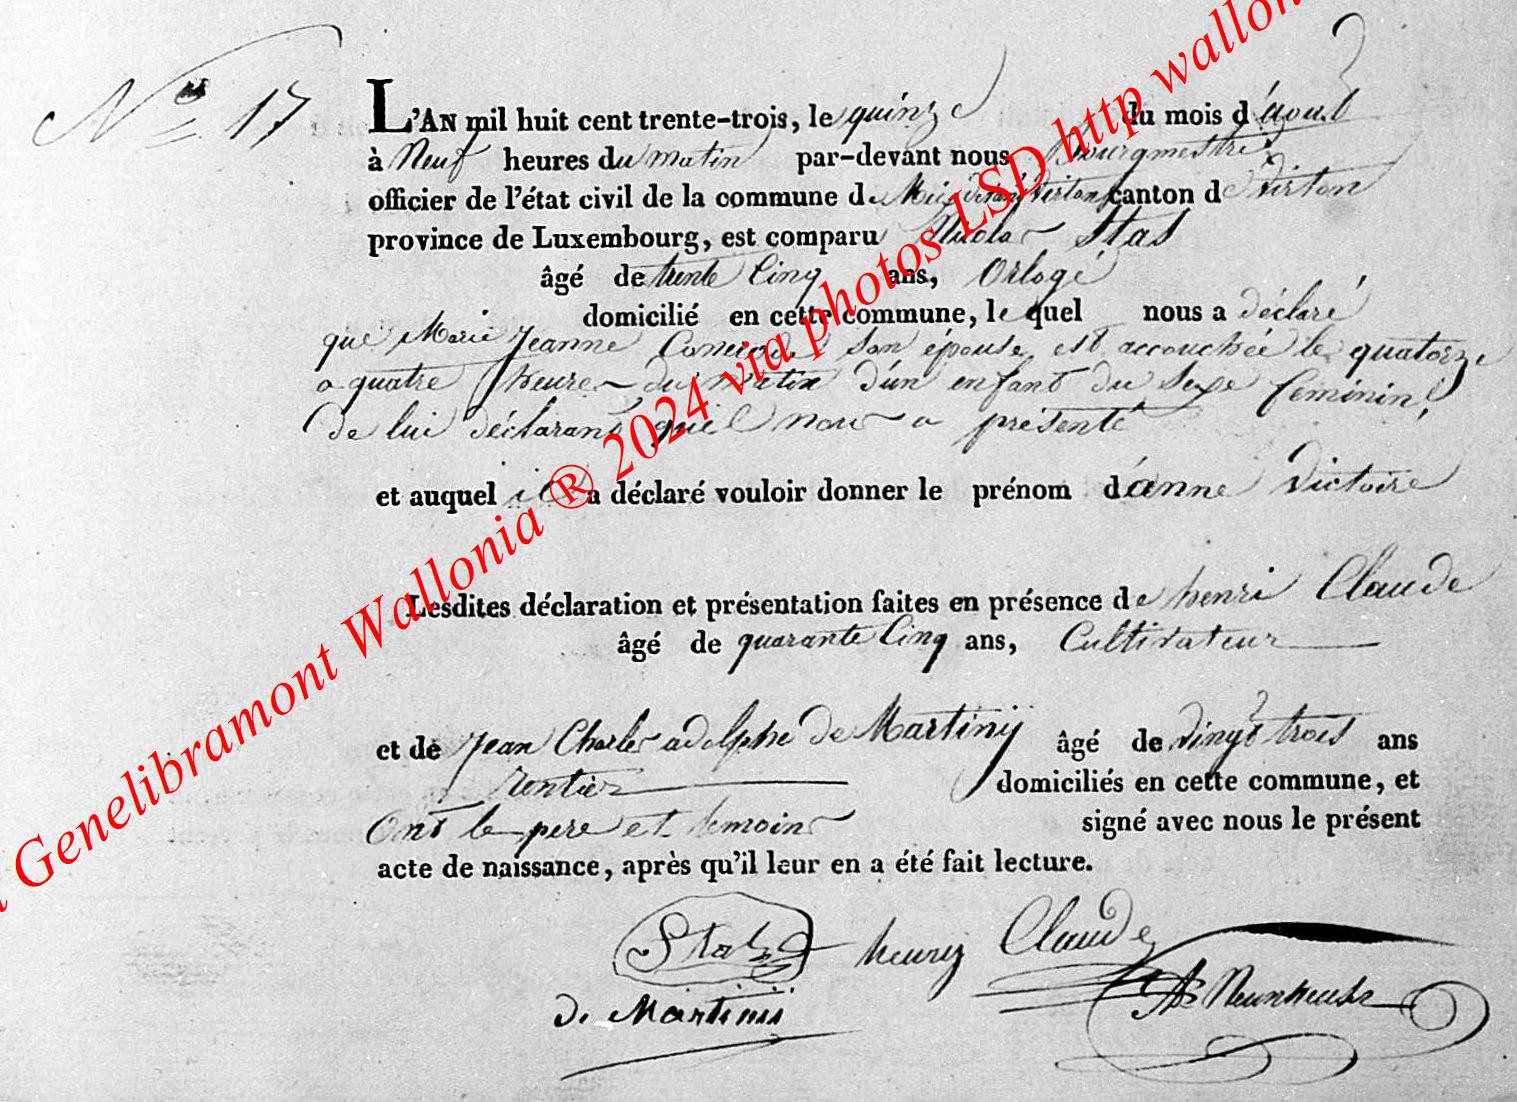 N.º 17
L'AN mil huit cent trente-trois, le quinze du mois d'août
à Neuf heures du matin par-devant nous Bourgmestre
officier de l'état civil de la commune de Meix devant Virton canton de Virton
province de Luxembourg, est comparu Nicolas Stas
âgé de trente Cinq ans, Orlogé
domicilié en cette commune, le quel nous a déclaré
que Marie Jeanne son épouse est accouchée le quatorze
a quatre heures du matin d'un enfant du Sexe feminin
de lui déclarant qu'il nous a présenté
et auquel il a déclaré vouloir donner le prénom d'anne Victoire
Lesdites déclaration et présentation faites en présence de henri Claude
âgé de quarante Cinq ans, Cultivateur
et de Jean Charles adolphe de Martiny âgé de vingt trois ans
rentier domiciliés en cette commune, et
Ont le pere et temoins signé avec nous le présent
acte de naissance, après qu'il leur en a été fait lecture.
Stas henry Claude
de Martinij
Genelibramont Wallonia ® 2024 via photos LSD http wallon